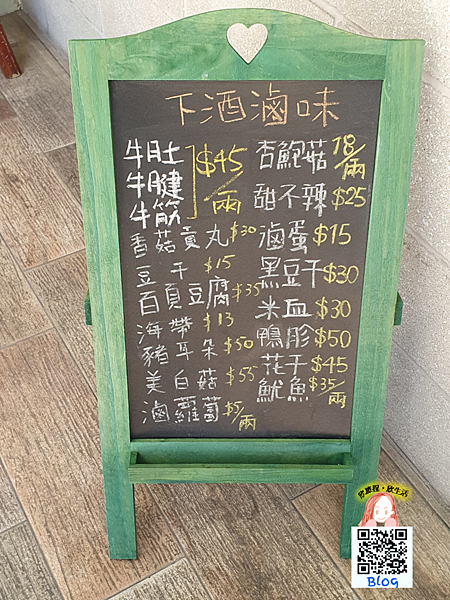 下酒滷味
牛肚
牛腱
牛筋
$45/兩
香菇貢丸 $30
豆干 $15
百頁豆腐 $35
海帶 $13
豬耳朵 $50
美白菇 $55
滷蘿蔔 $5/兩
杏鮑菇 18/兩
甜不辣 $25
滷蛋 $15
黑豆干 $30
米血 $30
鴨胗 $50
花干 $45
魷魚 $35/兩
BLOG